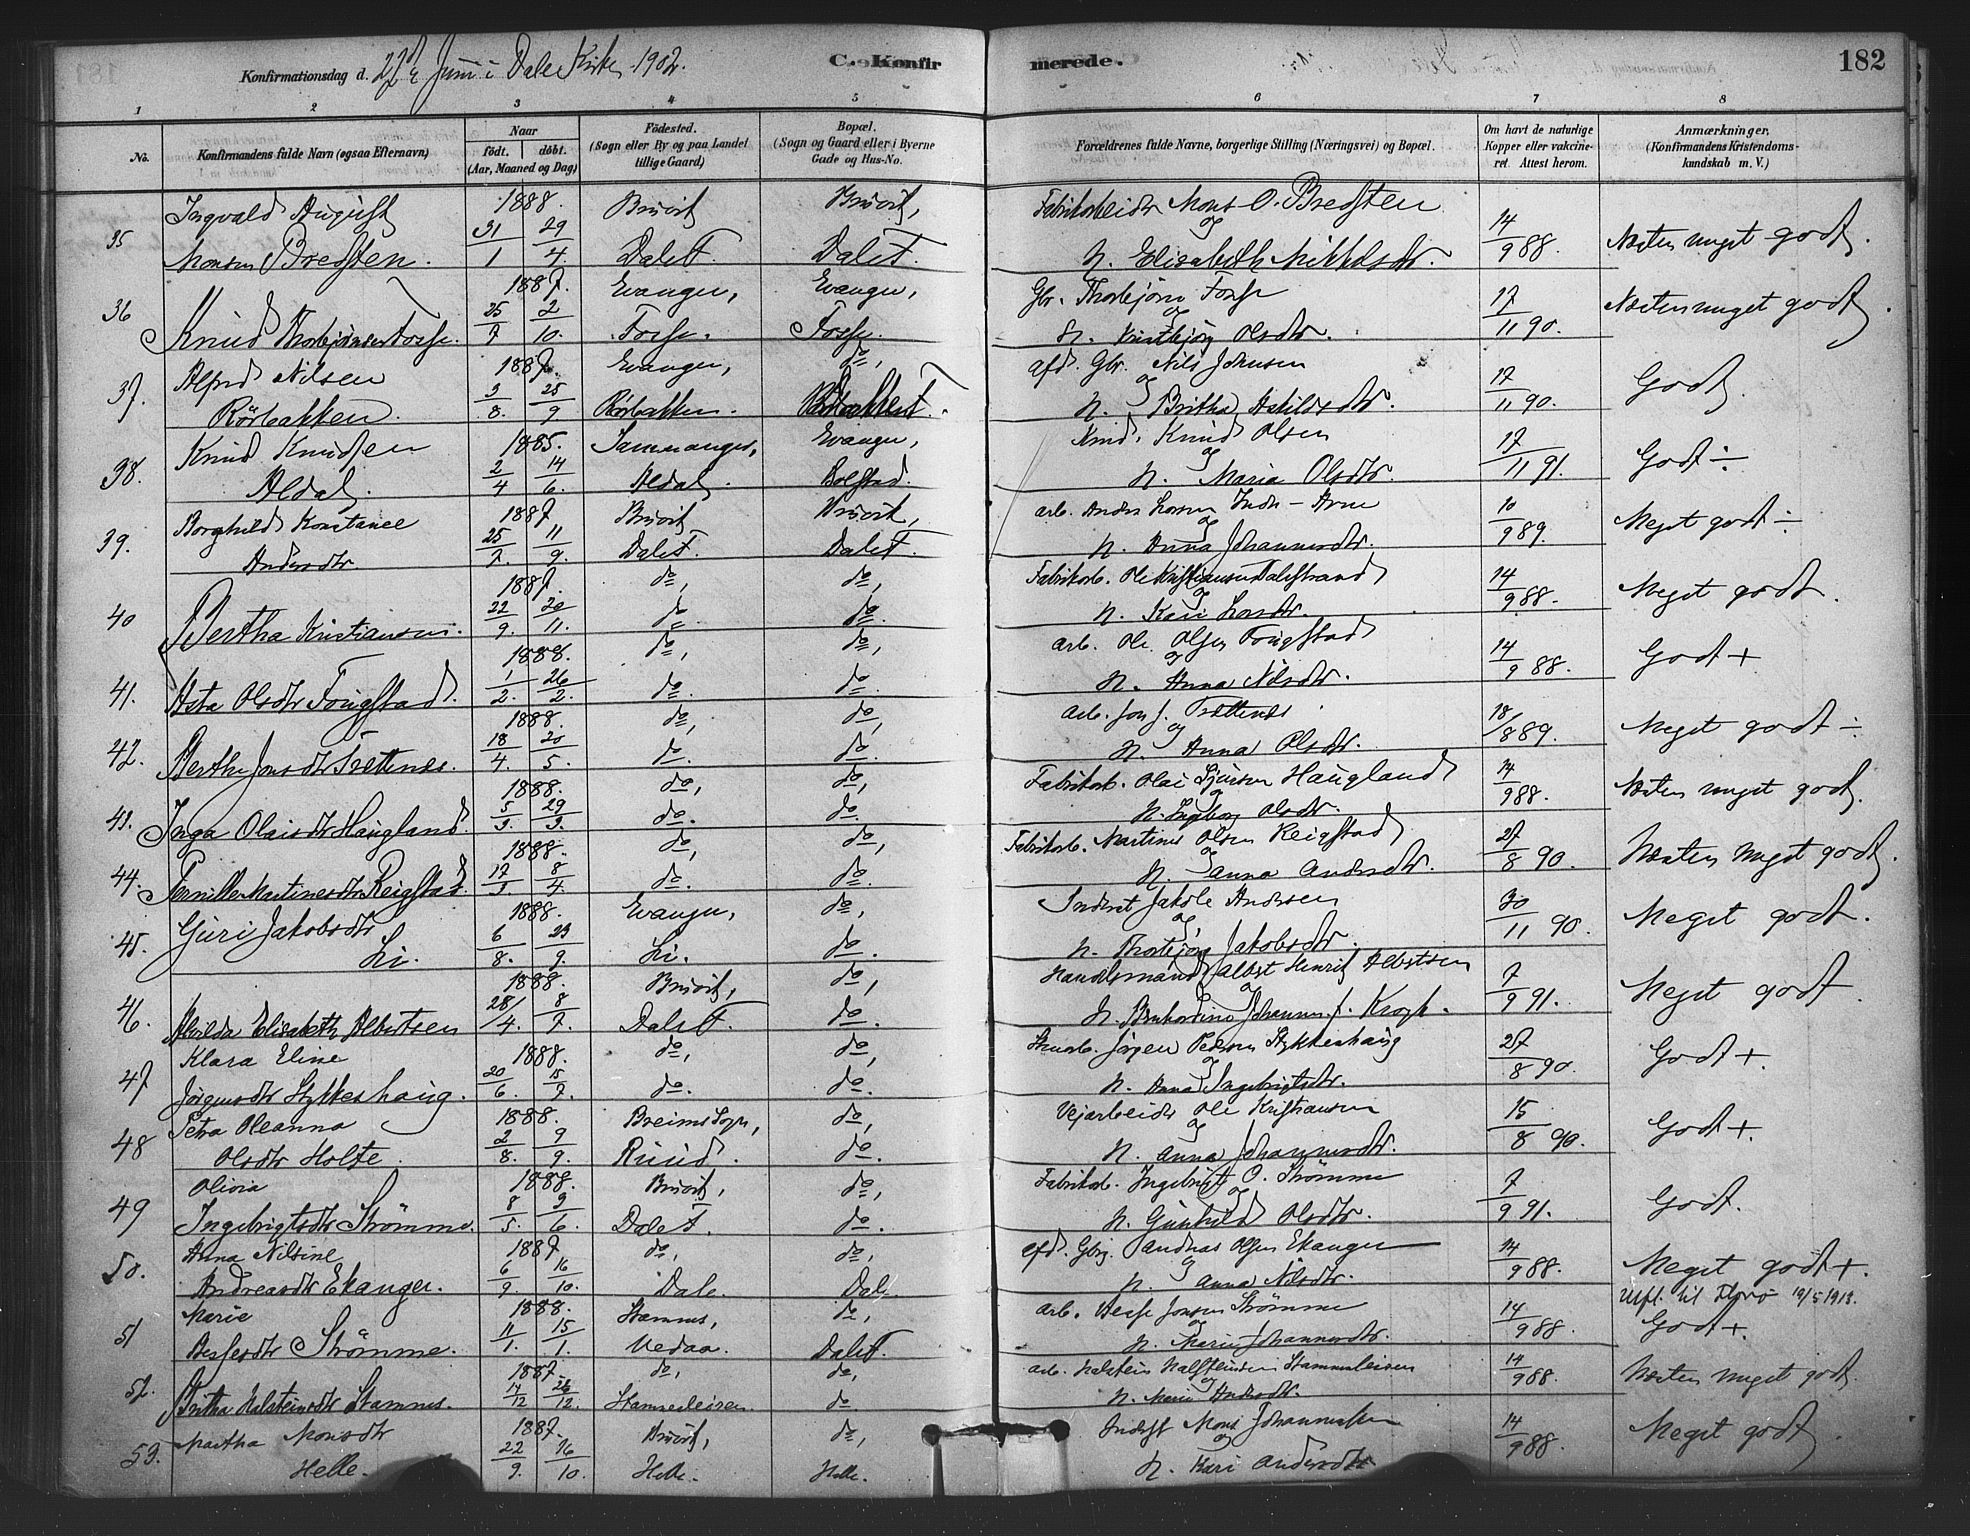 Konfirmationsdag d. 22de Juni i Dale Kirke 1902. C. Konfirmerede. 182
1 2 3 4 5 6 7 8
No. Konfirmandens fulde Navn (ogsaa Efternavn) Naar født. døbt. (Aar, Maaned og Dag) Fødested. (Sogn eller By og paa Landet tillige Gaard) Bopæl. (Sogn og Gaard eller i Byerne Gade og Hus-No. Forældrenes fulde Navne, borgerlige Stilling (Næringsvei) og Bopæl. Om havt de naturlige Kopper eller vakcineret. Attest herom. Anmærkninger, (Konfirmandens Kristendomskundskab m. V.)
Ingvald August 1888. Bruvik, Bruvik, Fabrikarbeider Mons O. Bredsten
35 Monsen Bredsten. 31/1 29/4 Dale F. Dale F. og H. Elisabeth Mikkelsdtr. 14/9 88. Næsten meget godt.
1887. Evanger, Evanger, Gbr. Thorbjørn Fosse
36 Knud Thorbjørnsen Fosse. 25/7 2/10. Fosse. Fosse. og H. Kristbjørg Olsdtr. 17/11 90. Næsten meget godt.
Alfred Nilsen 1887. Evanger, do, afd. Gbr. Nils Johansen
37. Rörbakken. 3/8. 25/9 Rörbakken. og H. Britha Askildsdtr. 17/11 90. Godt.
Knud Knudsen 1885. Sammanger, Evanger, Knud Olsen
38. Aldal. 2/4 14/6. Aldal. Bolstad. og H. Maria Olsdtr. 17/11 91. Godt ÷
Borghild Konstance 1887 Bruvik Bruvik, arb. Anders Larsen Indre-Arne
39. Andersdtr. 25/7. 11/9. Dale F. Dale F. og H. Anna Johannesdtr. 10/9 89. Meget godt ÷
1887. do, do, Fabrikarb. Ole Kristiansen Dalestrand
40 Bertha Kristiansen. 22/9. 20/11. do. do. og H. Kari Larsdtr. 14/9 88. Meget godt.
1888. do, do, arb. Ole Olsen Fougstad
41. Asta Olsdtr Fougstad. 1/2. 26/2. do. do. og H. Anna Nilsdtr. 14/9 88. Godt +
1888. do, do, arb. Jon J. Trættenes
42. Berthe Jonsdtr Trettenes. 18/4. 20/5. do. do. og H. Anna Olsdtr. 18/8 89. Meget godt ÷
1888. do, do, Fabrikarb. Olai Sjursen Haugland
43. Inga Olaisdtr Haugland. 5/3. 29/3. do. do. og H. Ingeborg Olsdtr. 14/9 88. Næsten meget godt.
1888. do, do, Fabrikarb. Martinus Olsen Reigstad
44. Pernille Martinesdtr Reigstad. 17/3 8/4. do. do. og H. Anna Andersdtr. 27/8 90. Næsten meget godt.
Guri Jakobsdtr 1888. Evanger, do, Inderst Jakob Andersen
45. Li. 6/8. 23/9. Li. do. og H. Thorbjørg Jakobsdtr. 20/11 90. Meget godt.
1888. Bruvik, do, Handelsmand Albert Henrik Albertsen
46. Alvilda Elisabeth Albertsen 28/4. 8/7. Dale F. do. og H. Johanna f. Krogh. 7/9 91. Meget godt.
Klara Eline 1888. do, do, Jørgen Pedersen Stykkeshaug
47 Jörgensdtr Stykkeshaug. 20/6. 15/7. do. do. og H. Anna Ingebrigtsdtr. 27/8 90. Godt +
Petra Oleanna 1888. Breims Sogn, do, Vejarbeider Ole Kristiansen
48 Olsdtr Holte. 2/8. 9/9. Ruud. do. og H. Anna Johannesdtr. 15/8 90. Godt +.
Olivia 1888. Bruvik, do, Fabrikarb. Ingebrigt O. Strømme
49 Ingebrigtsdtr Strömme. 8/5. 9/6. Dale F. do. og H. Gunhild Olsdtr. 7/9 91. Godt.
Anna Nilsine 1887 do, do, afd. Gbrg. Andreas Olsen Ekanger
50. Andreasdtr Ekanger. 6/9. 16/10. Dale. Dale og H. Anna Nilsdtr. 14/9 88. Meget godt +.
Utfl. til Florø 19/5 1913.
Marie 1888. Stamnes, do, arb. Besse Jonsen Strømme
51 Bessesdtr Strömme. 11/1. 15/1. Vedaa. Dale F. og H. Marie Johannesdtr. 14/9 88. Godt +.
1887. do, do, arb. Halstein Halsteinsen Stamnesleiren
52. Britha Halsteinsdtr Stamnes. 17/12 26/12. Stamnesleiren. do. og H. Marie Andersdtr. 14/9 88. Næsten meget godt.
Martha Monsdtr 1887. Bruvik, do, Inderst Mons Johannessen
53. Helle. 22/9. 16/10. Helle. Helle. og H. Kari Andersdtr 14/9 88. Meget godt.